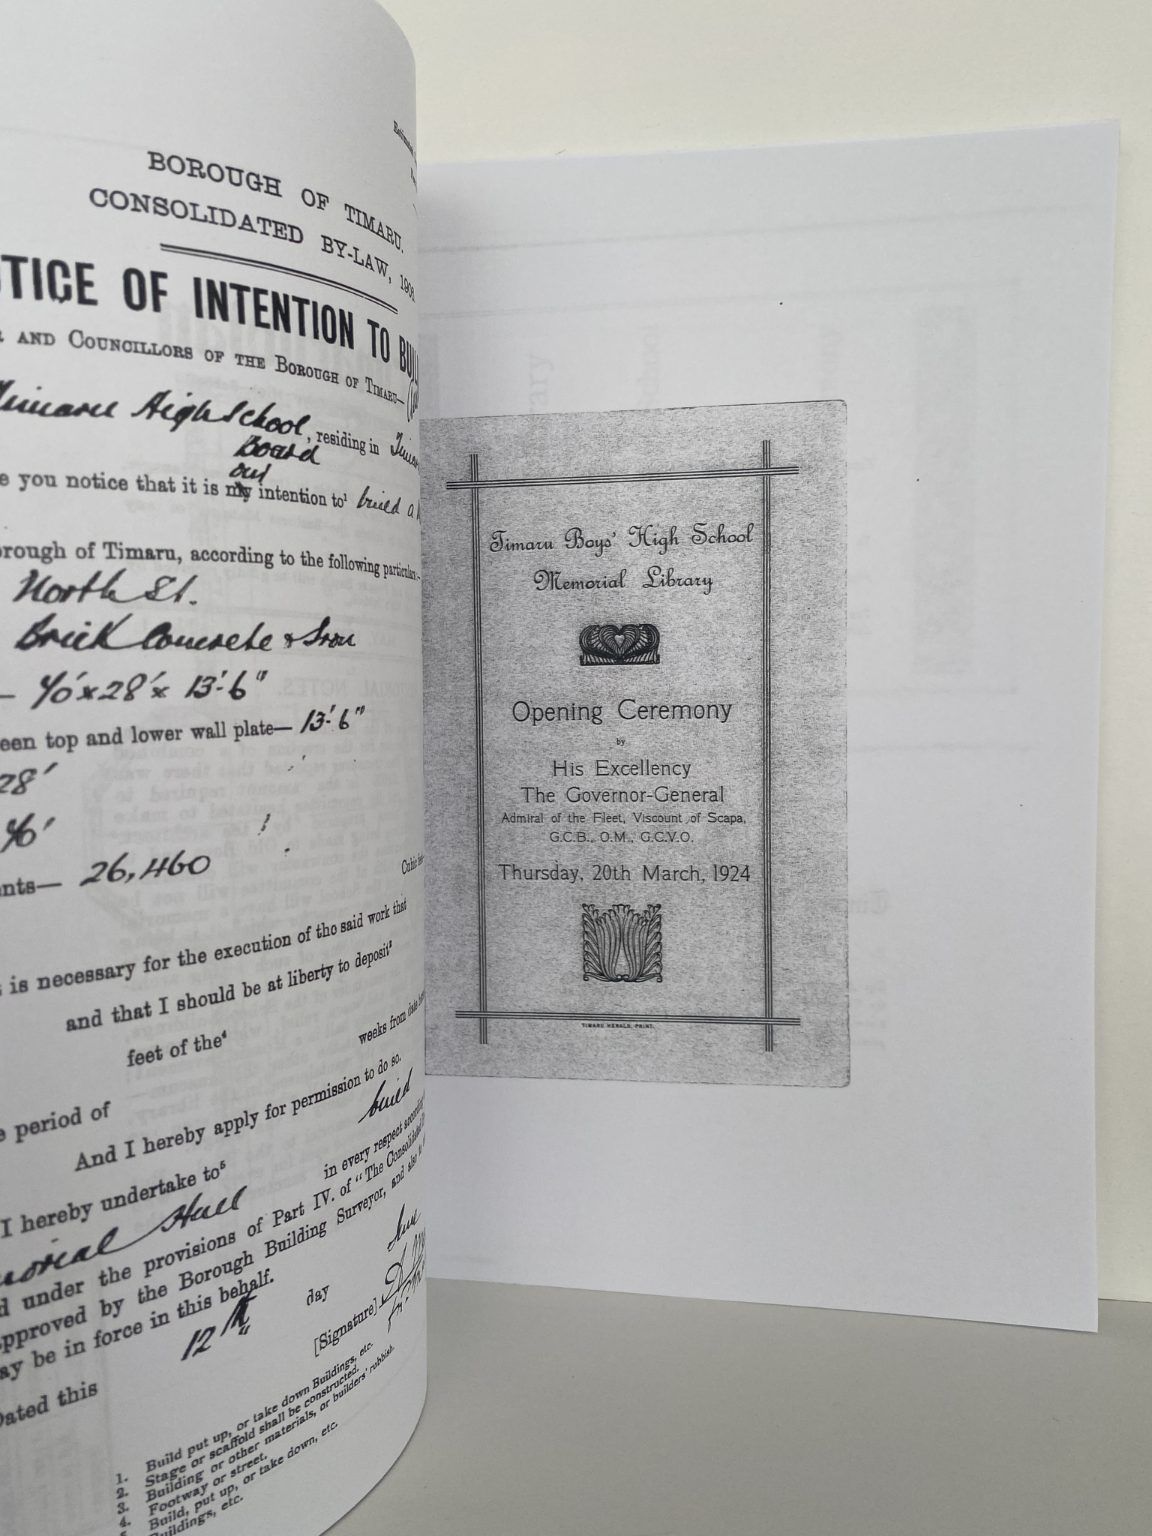 BOROUGH OF TIMARU.
CONSOLIDATED BY-LAW, 1908
OF INTENTION TO
AND COUNCILLORS OF THE BOROUGH OF TIMARU—
Timaru High School, residing in
Board
our
you notice that it is my intention to¹ build a
of Timaru, according to the following particulars:
North St.
Brick Concrete & Iron
13'-6"
top and lower wall plate— 13'-6"
28'
26,460 Cubic
is necessary for the execution of the said work that
and that I should be at liberty to deposit³
feet of the⁴
weeks from date
period of
And I hereby apply for permission to do so.
build
I hereby undertake to⁵
in every respect according
Hall
under the provisions of Part IV. of "The Consolidated
approved by the Borough Building Surveyor, and also
be in force in this behalf.
12th day
[Signature]
Dated this
1. Build put up, or take down Buildings, etc.
2. Stage or scaffold shall be constructed.
3. Building or other materials, or builders' rubbish.
4. Footway or street.
5. Build, put up, or take down, etc.
Buildings, etc.
Timaru Boys' High School
Memorial Library
Opening Ceremony
by
His Excellency
The Governor-General
Admiral of the Fleet, Viscount of Scapa,
G.C.B., O.M., G.C.V.O.
Thursday, 20th March, 1924
TIMARU HERALD, PRINT.